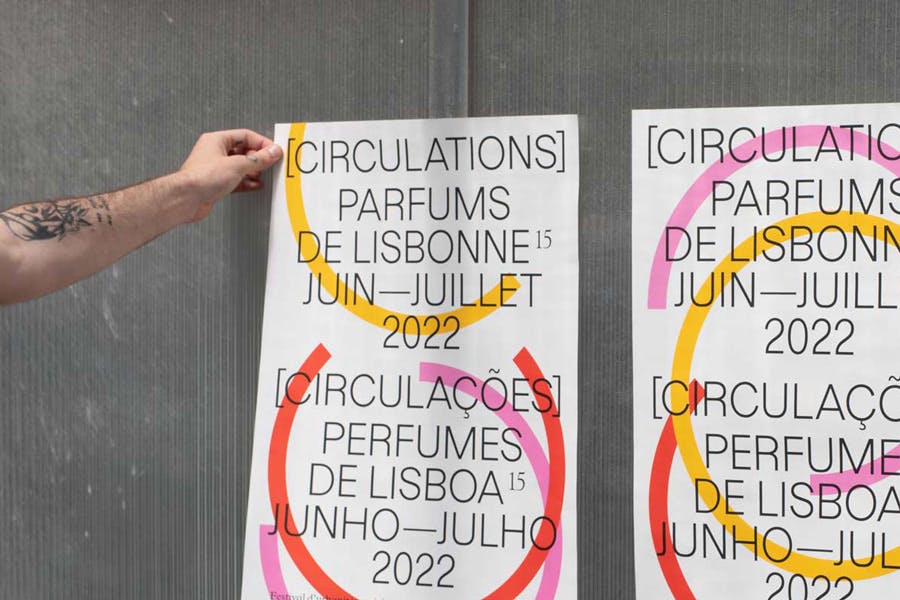 [CIRCULATIONS]
PARFUMS
DE LISBONNE 15
JUIN—JUILLET
2022
[CIRCULAÇÕES]
PERFUMES
DE LISBOA 15
JUNHO—JULHO
2022
Festival
[CIRCULATIO
PARFUMS
DE LISBONN
JUIN—JUILL
2022
[CIRCULAÇÕ
PERFUME
DE LISBOA
JUNHO—JUL
2022